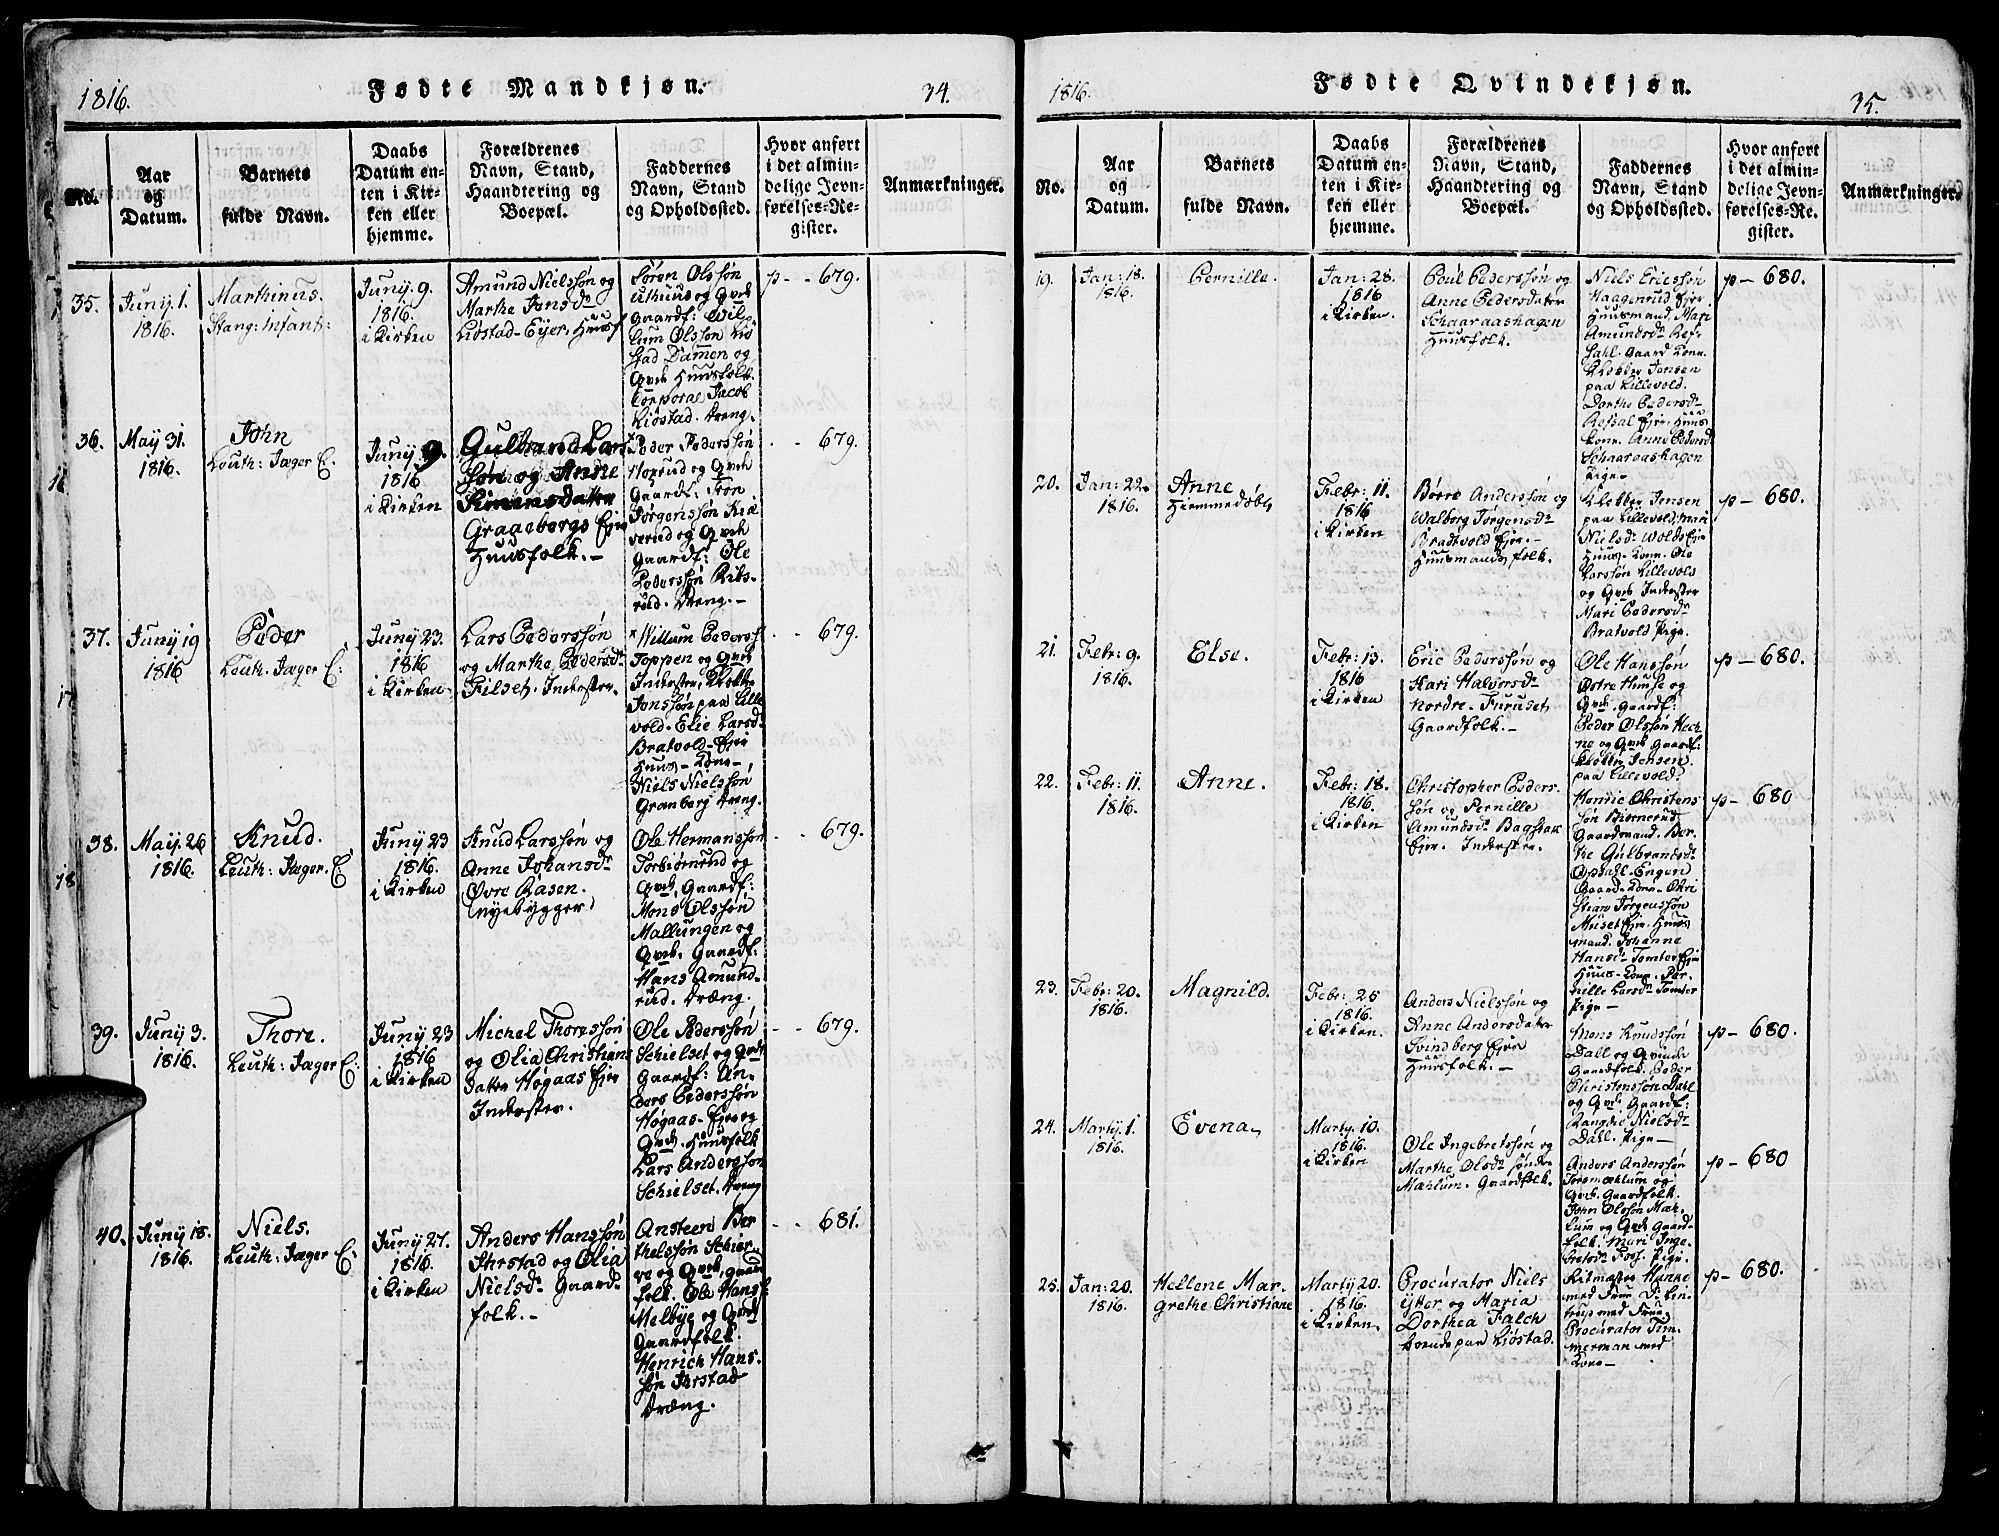 1816.
Fødte Mandkjøn.
34.
No.
Aar
og
Datum.
Barnets
fulde Navn.
Daabs
Datum en-
ten i Kir-
ken eller
hjemme.
Forældrenes
Navn, Stand,
Haandtering og
Boepæl.
Faddernes
Navn, Stand
og Opholdssted.
Hvor anført
i det almin-
delige Jevn-
førelses-Re-
gister.
Anmærkninger.
35.
Juny. 1.
1816.
Marthinus.
Stang: Infant:
Juny. 9.
1816.
i Kirken
Amund Nielssøn og
Marthe Jonsdr
Liøstad-Eyer, Huusf
Søren Olssøn
og Qvde
Gaardf: Wil-
lum Olssøn Liø
stad Damen og
Qvde Huusfolk.
Corporal Jacob
Liøstad. Dreng.
p - - 679.
36.
May 31.
1816.
John
Leuth: Jæger C.
Juny 9.
1816
i Kirken
Gulbrand Lars
søn og Anne
Simensdatter
Graaebergs Eje
Huusfolk. -
Peder Pederssøn
og Qvde
Gaardf: Tron
Jørgenssøn Kiæ
verud og Qvde
Gaardf: Ole
Pederssøn Ribs-
rud. Dreng. -
- - 679.
37.
Juny 19
1816
Peder
Leuth. Jæger C:
Juny 23.
1816
i Kirken.
Lars Pederssøn
og Marthe Pedersdr
Filset. Inderster.
Willum Peders
Toppen og Qvde
Inderster, Klokker
Jonssøn paa Lille
vold. Elie Larsdr
Bratvold-Ejer
Huus-Kone-
Niels Nielssøn
Granberg Dreng.
- - 679.
38.
May. 26
1816.
Knud.
Leuth: Jæger. C
Juny 23
1816.
i Kirken
Knud Larssøn og
Anne Johansdr
Øvre Rasen.
(nyebygger)
Ole Hermanssøn
Torbiørnrud og
Qvde. Gaardf:
Mons Olssøn
Mallungen og
Qvde. Gaardf:
Hans Amund-
rud. Dræng.
- - 679.
39.
Juny 3.
1816.
Thore.
Leuth: Jæger C:
Juny 23
1816
i Kirken
Michel Thoressøn
og Olia Christian
datter Høgaas Ejer
Inderster.
Ole Pederssøn
Schielset og Qvde
Gaardf: An-
ders Pederssøn
Høgaas-Ejer og
Qvde. Huusfolk
Lars Anderssøn
Schielset. Dreng
- - 679.
40.
Juny 18.
1816.
Niels.
Leuth: Jæger C:
Juny 27.
1816.
i Kirken
Anders Hanssøn
Ihrstad og Olia
Nielsdr Gaard
folk. -
Ansteen Ber
thelssøn Schier
ve og Qvde, gaard
folk. Ole Hanss
Melbye og Qvde
Gaardfolk.
Henrich Hans-
søn Jrstad
Dræng.
- - 681.
1816.
Fødte Qvindekjøn.
35.
No.
Aar
og
Datum.
Barnets
fulde Navn.
Daabs
Datum en-
ten i Kir-
ken eller
hjemme.
Forældrenes
Navn, Stand,
Haandtering og
Boepæl.
Faddernes
Navn, Stand
og Opholdssted.
Hvor anført
i det almin-
delige Jevn-
førelses-Re-
gister.
Anmærkninger.
19.
Jan: 18.
1816.
Pernille.
Jan: 28.
1816
i Kirken.
Poul Pederssøn og
Anne Pedersdatter
Schaaraashagen
Huusfolk.
Niels Ericssøn
Haagenrud Ejer
Huusmand. Mari
Amundsdr Ref-
sahl. Gaard Kone.
Klokker Jonsen
paa Lillevold.
Dorthe Pedersdr
Refsal Ejer, Huus
Kone. Anne Pedersd
Schaaraashagen
Pige-
p - 680.
20.
Jan: 22.
1816.
Anne
Hiemmedøbt
Febr: 11.
1816
i Kirken
Børre Anderssøn og
Walborg Jørgensdr
Bradtvold Ejer. -
Huusmands folk.
Klokker Jensen
paa Lillevold, Mari
Nielsdr Wolds Eje
Huus-Kone. Ole
Larssøn Lillevold
og Qvde Inderster
Mari Pedersdr
Bratvold Pige.
p - 680.
21.
Febr: 9.
1816.
Else.
Febr: 13.
1816
i Kirken
Eric Pederssøn og
Kari Halvorsdr
Nordre-Furuset,
Gaardfolk. -
Ole Hanssøn
Østre Huuse og
Qvde. Gaardf:
Peder Olssøn Hech
ne og Qvde Gaardf:
Klokker Jensen.
paa Lillevold.
p - 680.
22.
Febr: 11.
1816.
Anne.
Febr: 18.
1816.
i Kirken
Christopher Peders-
søn og Pernille
Amundsdr Bagstad
Ejer. Inderster.
Christens
søn Biørnerud
Gaardmand. Ber-
the Gulbrandsdr
Opsahl-Engen
Gaard-Kone-Chri
stian Jørgenssøn
Museet Eje. Huus
mand. Johanne
Hansdr Tomter Eje
Huus-Kone. Per-
nille Larsdr Tomter
Pige-
p - 680
23.
Febr: 20.
1816.
Magnild.
Febr: 25
1816.
i Kirken.
Anders Nielssøn og
Anne Andersdatter
Svindberg Ejer
Huusfolk. -
Mons Knudssøn
Dall og Qvinde
Gaardfolk. Peder
Christenssøn Dahl
og Qvde Gaardf:
Rangdie Nielsdr
Dahl. Pige-
p - 680.
24.
Marty. 1.
1816.
Evena
Marty. 10.
1816.
i Kirken
Ole Ingebretssøn og
Marthe Olsdr Søndre
Mæhlum. Gaardfolk.
Anders Anderssøn
Torsmæhlum og
Qvde. Gaardfolk.
John Olssøn Mæh-
lum og Qvde Gaard-
folk. Mari Inge-
bretsdr Foss. Pige.
p - 680
25.
Jan: 20.
1816.
Hellene Mar-
grethe Christiane
Marty 20.
1816.
i Kirken.
Procurator Niels
Ytter og Maria
Dorthea Falch
boende paa Liøstad.
Ritmester Hanne
med Frue. Dr
med Frue.
Procurator Tim-
merman med
Kone-
p - 680.